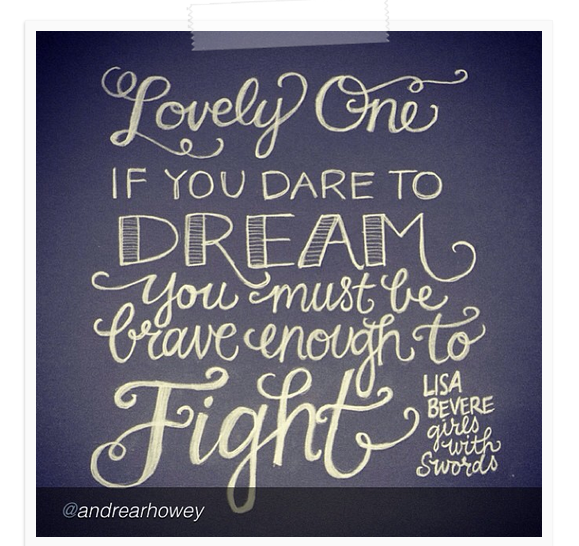 Lovely One
IF YOU DARE TO
DREAM
you must be
brave enough to
Fight
LISA
BEVERE
girls
with
Swords
@andrearhowey